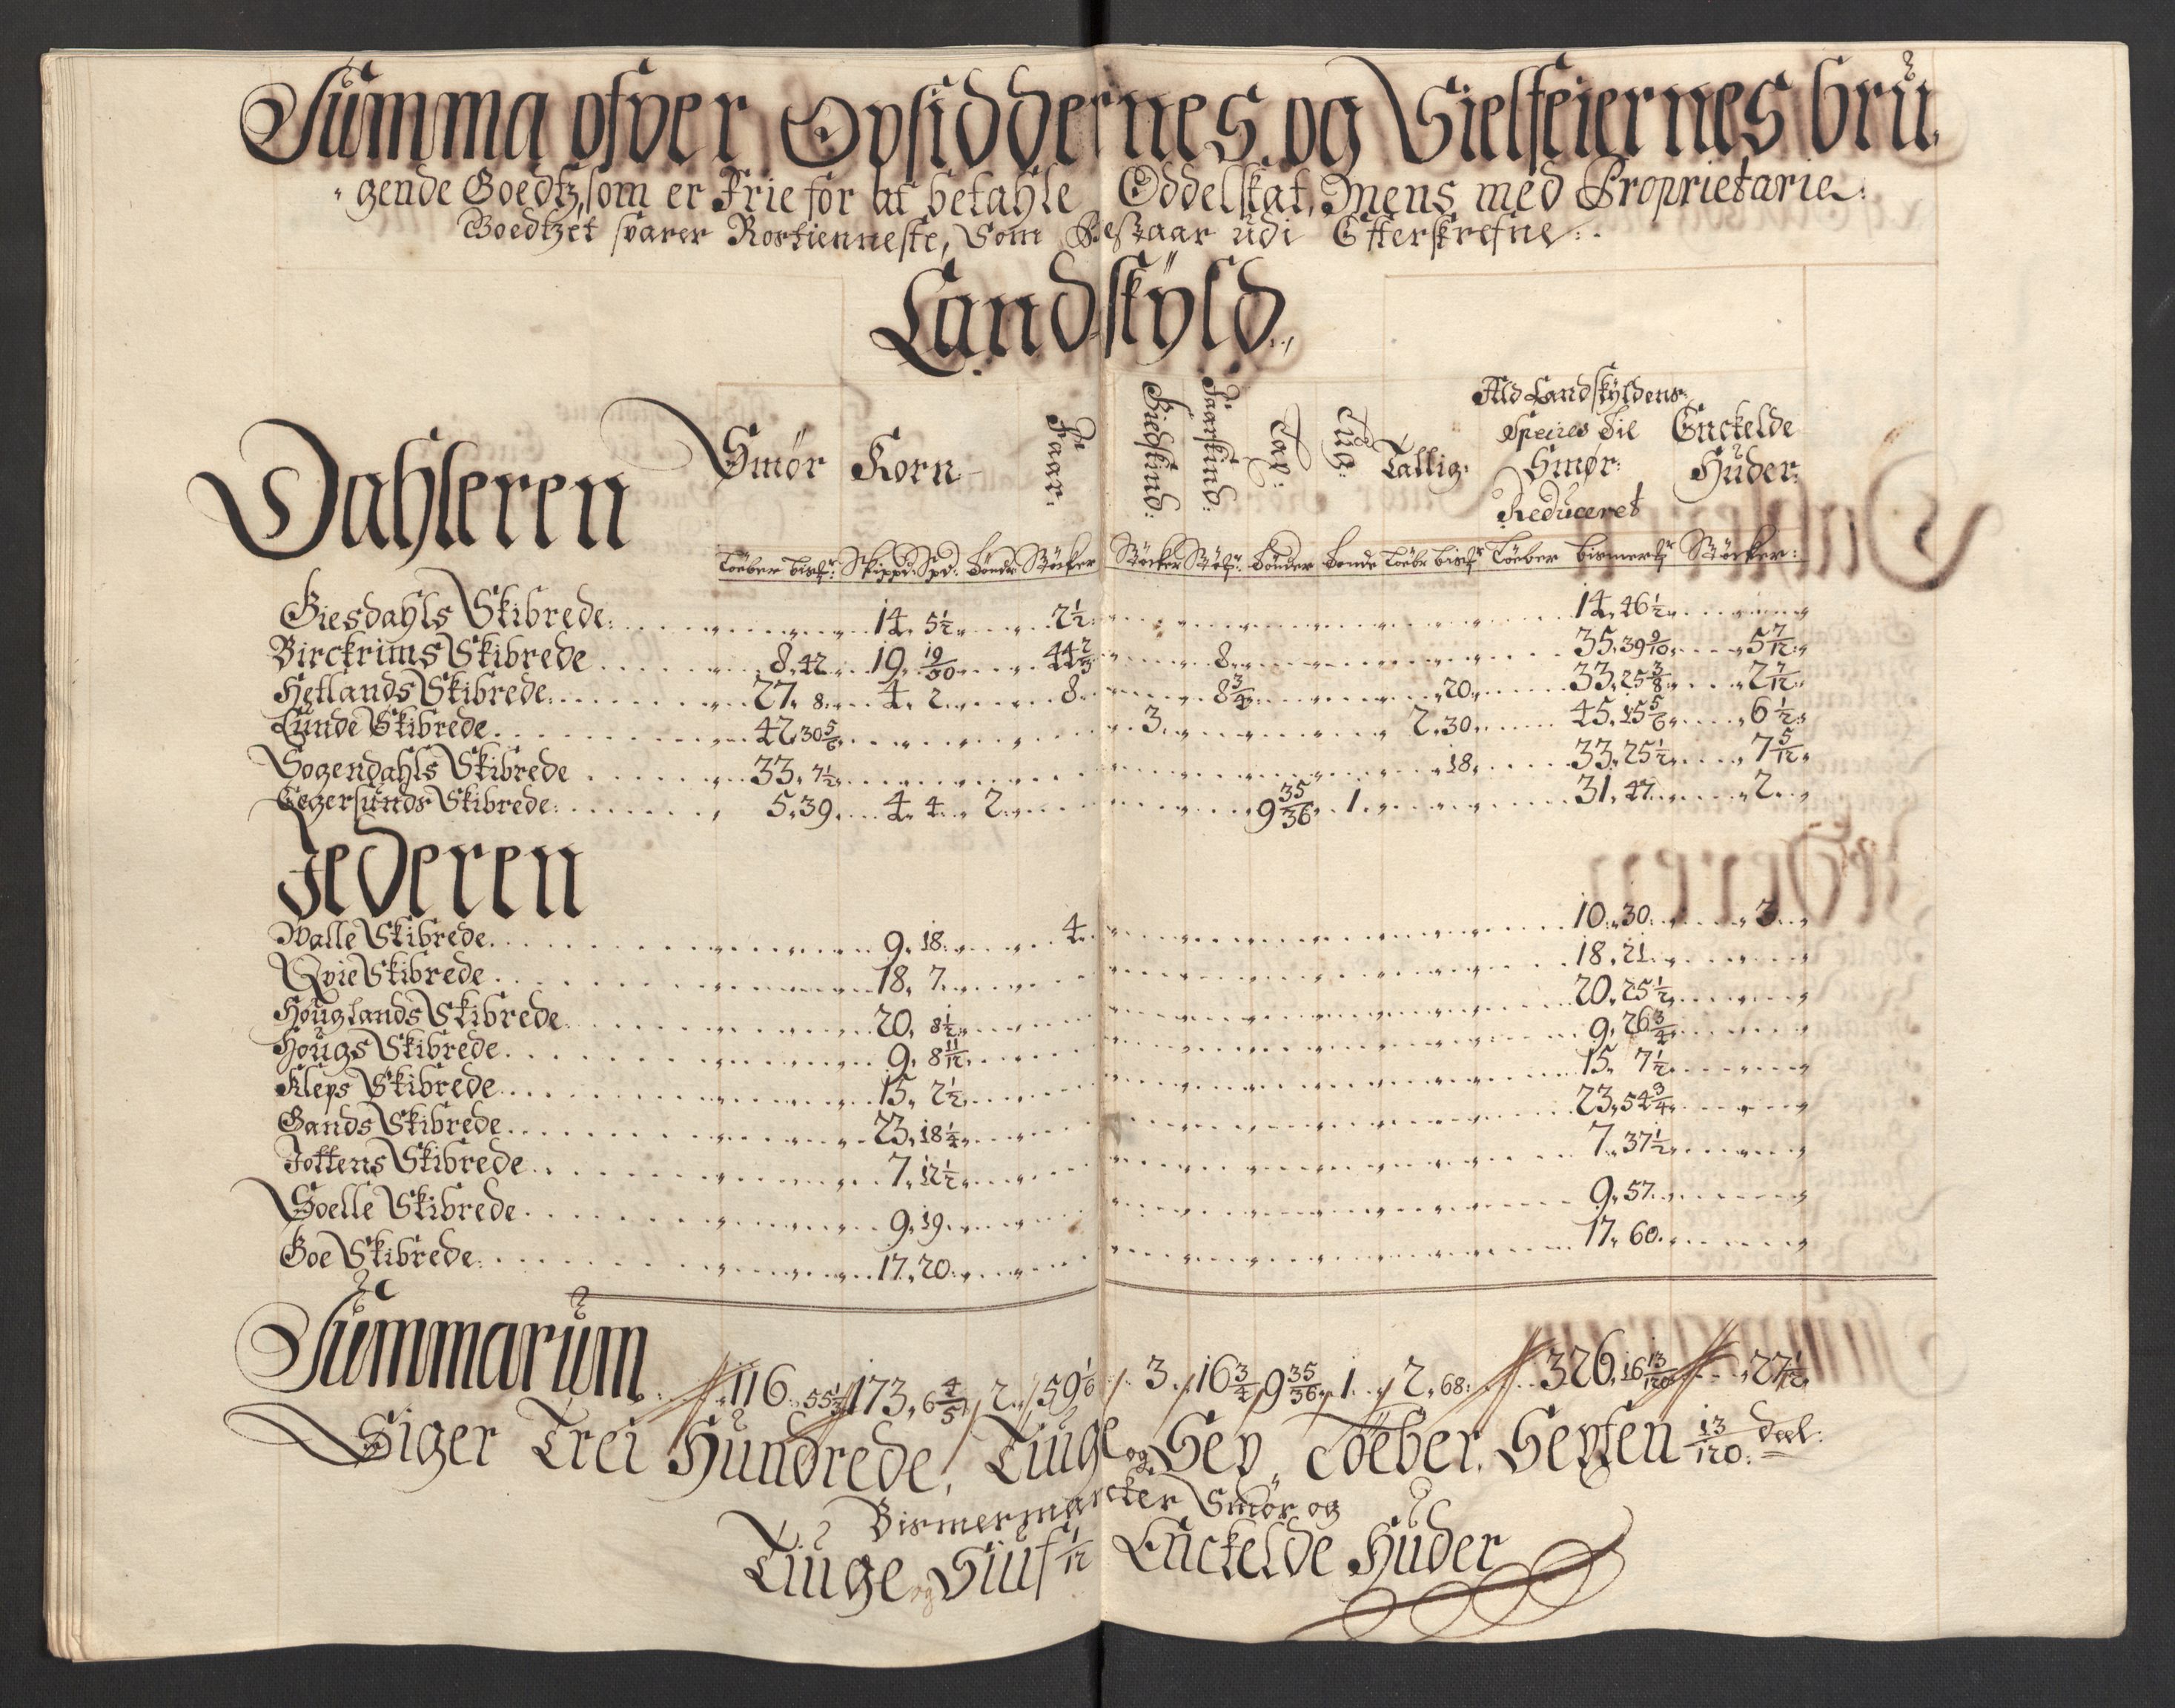 Summa ofver Opsiddernes og Sielfeiernes bru
gende Goedtz, som er Frie for at betahle Oddelskat, Mens med Proprietarie
Goedtzet svarer Rostienneste, Som Bestaar udi Efterskrefne:
Landskyld
Dahleren Smör Korn Faar: Giedskind: Faarskind: Tax: Tug: Tallig: Ald Landskyldens Speties til Smör: Reduceret Enckelde Huder:
Löeber bismr: Skippd: Spd: Tönder Stöcker Stöcker Stökr: Tönder Tonde Löebr bismr Löeber bismermr Stöcker:
Giesdahls Skibrede: 14. 5½ 2½ 14. 46½
Birckrims Skibrede 8. 42 19. 19/30 44 2/3 8 35. 39 9/10 5 7/12
Hetlands Skibrede: 27. 8. 4. 2. 8. 8¾ 20. 33. 25 3/8 2 7/12
Lunde Skibrede 42. 30 5/6 3. 2. 30. 45. 15 5/6 6½
Sogendahls Skibrede 33. 7½ 18. 33. 25½ 7 5/12
Eegersunds Skibrede: 5. 39. 4. 4. 2. 9 35/36 1. 31. 47. 2.
Jederen
Walle Skibrede 9. 18. 4. 10. 30. 3.
Qvie Skibrede 18. 7. 18. 21.
Houglands Skibrede 20. 8½ 20. 25½
Hougs Skibrede 9. 8 11/12 9. 26¾
Kleps Skibrede 15. 2½ 15. 7½
Gands Skibrede 23. 18¼ 23. 54¾
Jottens Skibrede 7. 12½ 7. 37½
Soelle Skibrede 9. 19. 9. 57.
Goe Skibrede: 17. 20. 17. 60.
Summarum 116. 55⅓ 173. 6 4/5 2. 59 1/6 3. 16¾ 9 35/36 1. 2. 68: 326. 16 13/120 27 1/12
Siger Trei Hundrede, Tiuge og Sex Löeber, Sexten 13/120 deel:
Bismermarcker Smör og
Tiuge og Siuf 1/12 Enckelde Huder